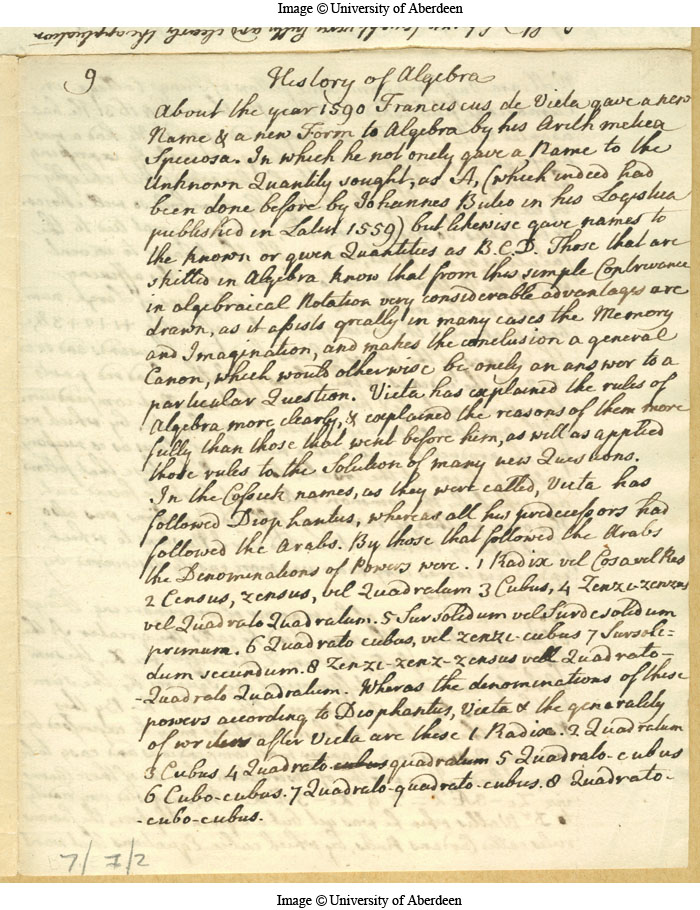 Image © University of Aberdeen
very fully and clearly the application
9
History of Algebra
About the year 1590 Franciscus de Vieta gave a new
Name & a new Form to Algebra by his Arithmetica
Speciosa. In which he not onely gave a Name to the
Unknown Quantity sought, as A, (which indeed had
been done before by Johannes Buteo in his Logistica
published in Latin 1559) but likewise gave names to
the known or given Quantities as B.C.D. Those that are
skilled in Algebra know that from this simple Contrivance
in algebraical Notation very considerable advantages are
drawn, as it assists greatly in many cases the Memory
and Imagination, and makes the conclusion a general
Canon, which would otherwise be onely an answer to a
particular Question. Vieta has explained the rules of
Algebra more clearly, & explained the reasons of them more
fully than those that went before him, as well as applied
those rules to the Solution of many new Questions.
In the Cossick names, as they were called, Vieta has
followed Diophantus, whereas all his predecessors had
followed the Arabs. By those that followed the Arabs
the Denominations of Powers were. 1 Radix vel Cosa vel Res
2 Census, zensus, vel Quadratum 3 Cubus, 4 Zenzi-zenzus
vel Quadrato Quadratum. 5 Sursolidum vel Surdesolidum
primum. 6 Quadrato cubus, vel zenzi-cubus 7 Sursoli=
dum secundum. 8 Zenzi-zenz-zensus vel Quadrato-
-Quadrato Quadratum. Wheras the denominations of these
powers according to Diophantus, Vieta & the generality
of writers after Vieta are these 1 Radix. 2 Quadratum
3 Cubus 4 Quadrato-cubus quadratum 5 Quadrato-cubus
6 Cubo-cubus. 7 Quadrato-quadrato-cubus. 8 Quadrato-
-cubo-cubus.
7/ 7/2
Image © University of Aberdeen